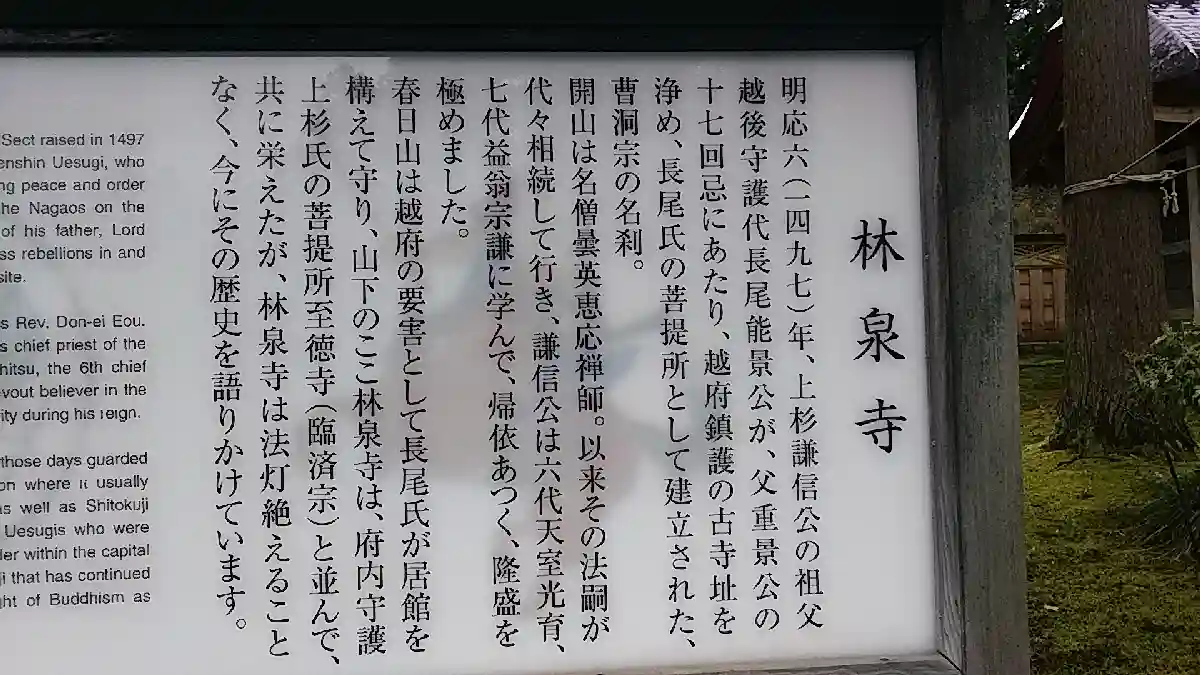 林泉寺
明応六(一四九七)年、上杉謙信公の祖父
越後守護代長尾能景公が、父重景公の
十七回忌にあたり、越府鎮護の古寺址を
浄め、長尾氏の菩提所として建立された、
曹洞宗の名刹。
開山は名僧曇英恵応禅師。以来その法嗣が
代々相続して行き、謙信公は六代天室光育、
七代益翁宗謙に学んで、帰依あつく、隆盛を
極めました。
春日山は越府の要害として長尾氏が居館を
構えて守り、山下のここ林泉寺は、府内守護
上杉氏の菩提所至徳寺(臨済宗)と並んで、
共に栄えたが、林泉寺は法灯絶えること
なく、今にその歴史を語りかけています。
Sect raised in 1497
enshin Uesugi, who
ng peace and order
he Nagaos on the
of his father, Lord
ss rebellions in and
site.
s Rev. Don-ei Eou.
s chief priest of the
hitsu, the 6th chief
evout believer in the
rity during his reign.
those days guarded
on where it usually
as well as Shitokuji
Uesugis who were
der within the capital
ji that has continued
ght of Buddhism as